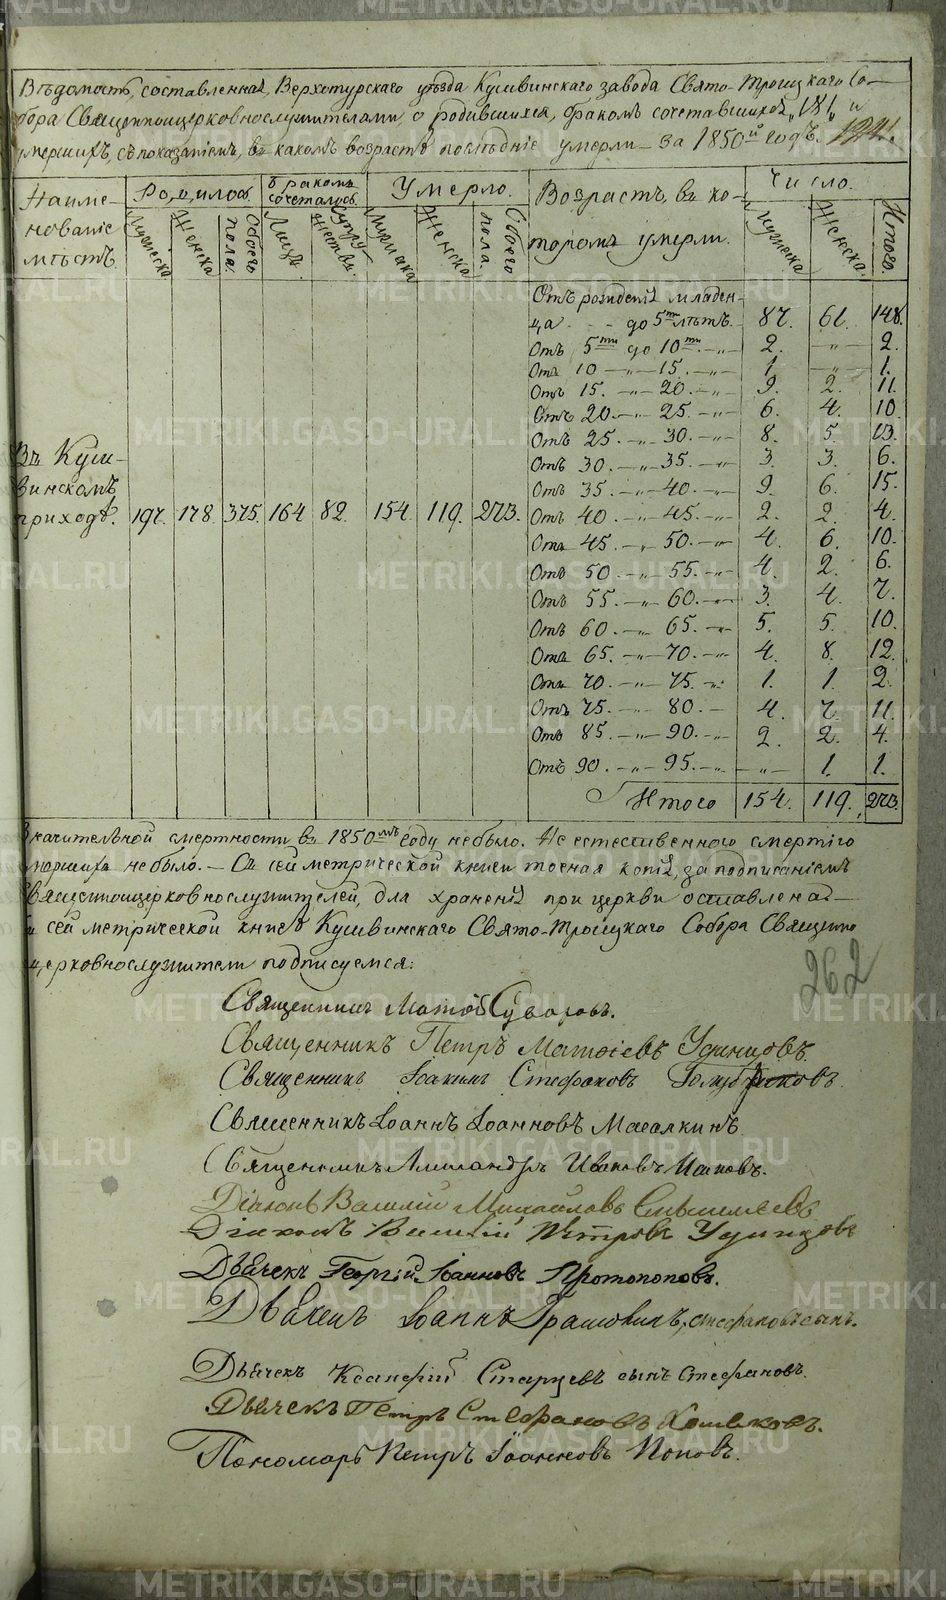 Вѣдомость, составленная, Верхотурскаго уѣзда Кушвинскаго завода Свято-Троицкаго Со-
бора Священноцерковнослужителами, о родившихся, бракомъ сочетавшихся, и
умершихъ, съ показанiемъ, въ какомъ возрастѣ послѣднiе умерли – за 1850й годъ.
Наиме-
нованiе
мѣстъ.
Родилось
Мужеска
Женска
Обоего пола.
Бракомъ сочеталось.
Лицъ
Супружествъ
Умерло.
Мужска
Женска
Обоего пола.
Возрастъ, въ ко-
торомъ умерли.
Число.
Мужеска
Женска.
Итого.
Въ Куш-
винскомъ
приходѣ. 197. 178. 375. 164 82. 154. 119. 273.
Отъ рожденiя младен-
ца до 5ти лѣтъ. 87. 61. 148.
Отъ 5ти до 10ти 2. —„— 2.
Отъ 10 —„— 15. —„— 1. —„— 1.
Отъ 15. —„— 20. —„— 9. 2. 11.
Отъ 20. —„— 25. —„— 6. 4. 10.
Отъ 25. —„— 30. —„— 8. 5. 13.
Отъ 30. —„— 35. —„— 3. 3. 6.
Отъ 35. —„— 40. —„— 9. 6. 15.
Отъ 40 —„— 45. —„— 2. 2. 4.
Отъ 45. —„— 50. —„— 4. 6. 10.
Отъ 50 —„— 55. —„— 4. 2. 6.
Отъ 55. —„— 60. —„— 3. 4. 7.
Отъ 60. —„— 65. —„— 5. 5. 10.
Отъ 65. —„— 70. —„— 4. 8. 12.
Отъ 70. —„— 75. —„— 1. 1. 2.
Отъ 75. —„— 80. — 4. 7. 11.
Отъ 85. —„— 90. —„— 2. 2. 4.
Отъ 90. —„— 95. —„— —„— 1. 1.
Итого 154. 119. 273.
Значительной смертности въ 1850мъ году небыло. Не естественною смертiю
умершихъ не было. — Съ сей метрической книги точная копiя, за подписанiемъ
Священноцерковнослужителей, для храненiя при церкви оставлена —
Къ сей метрической книгѣ Кушвинскаго Свято-Троицкаго Собора Священно
церковнослужители подписуемся:
262
Священникъ Матѳiй Суворовъ.
Священникъ Петръ Матѳiевъ Удинцовъ.
Священникъ Iоакимъ Стефановъ
Священникъ Iоаннъ Iоанновъ Масалкинъ
Священникъ Александръ Ивановъ Поповъ.
Дiаконъ Василiй Михайловъ
Дiаконъ Василiй Петровъ Удинцовъ
Дьячекъ Георгiй Iоанновъ Протопоповъ.
Дьячекъ Iоаннъ Стефановъ сынъ.
Дьячекъ Ксенофонтъ Старцевъ сынъ Стефановъ.
Дьячекъ Петръ Стефановъ
Пономарь Петръ Iоанновъ Поповъ.
METRIKI.GASO-URAL.RU